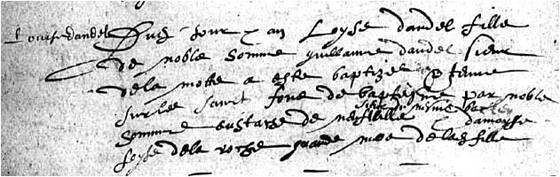 Louise dandel Dud jour et an Loyse dandel fille
de noble homme guillaume dandel sieur
de la mothe a este baptizee et tenue
sur les sainct fons de baptesme par noble
homme eustasse de neufville sieur du mesme et damoyselle
Loyse de la roche grande mere de lad fille